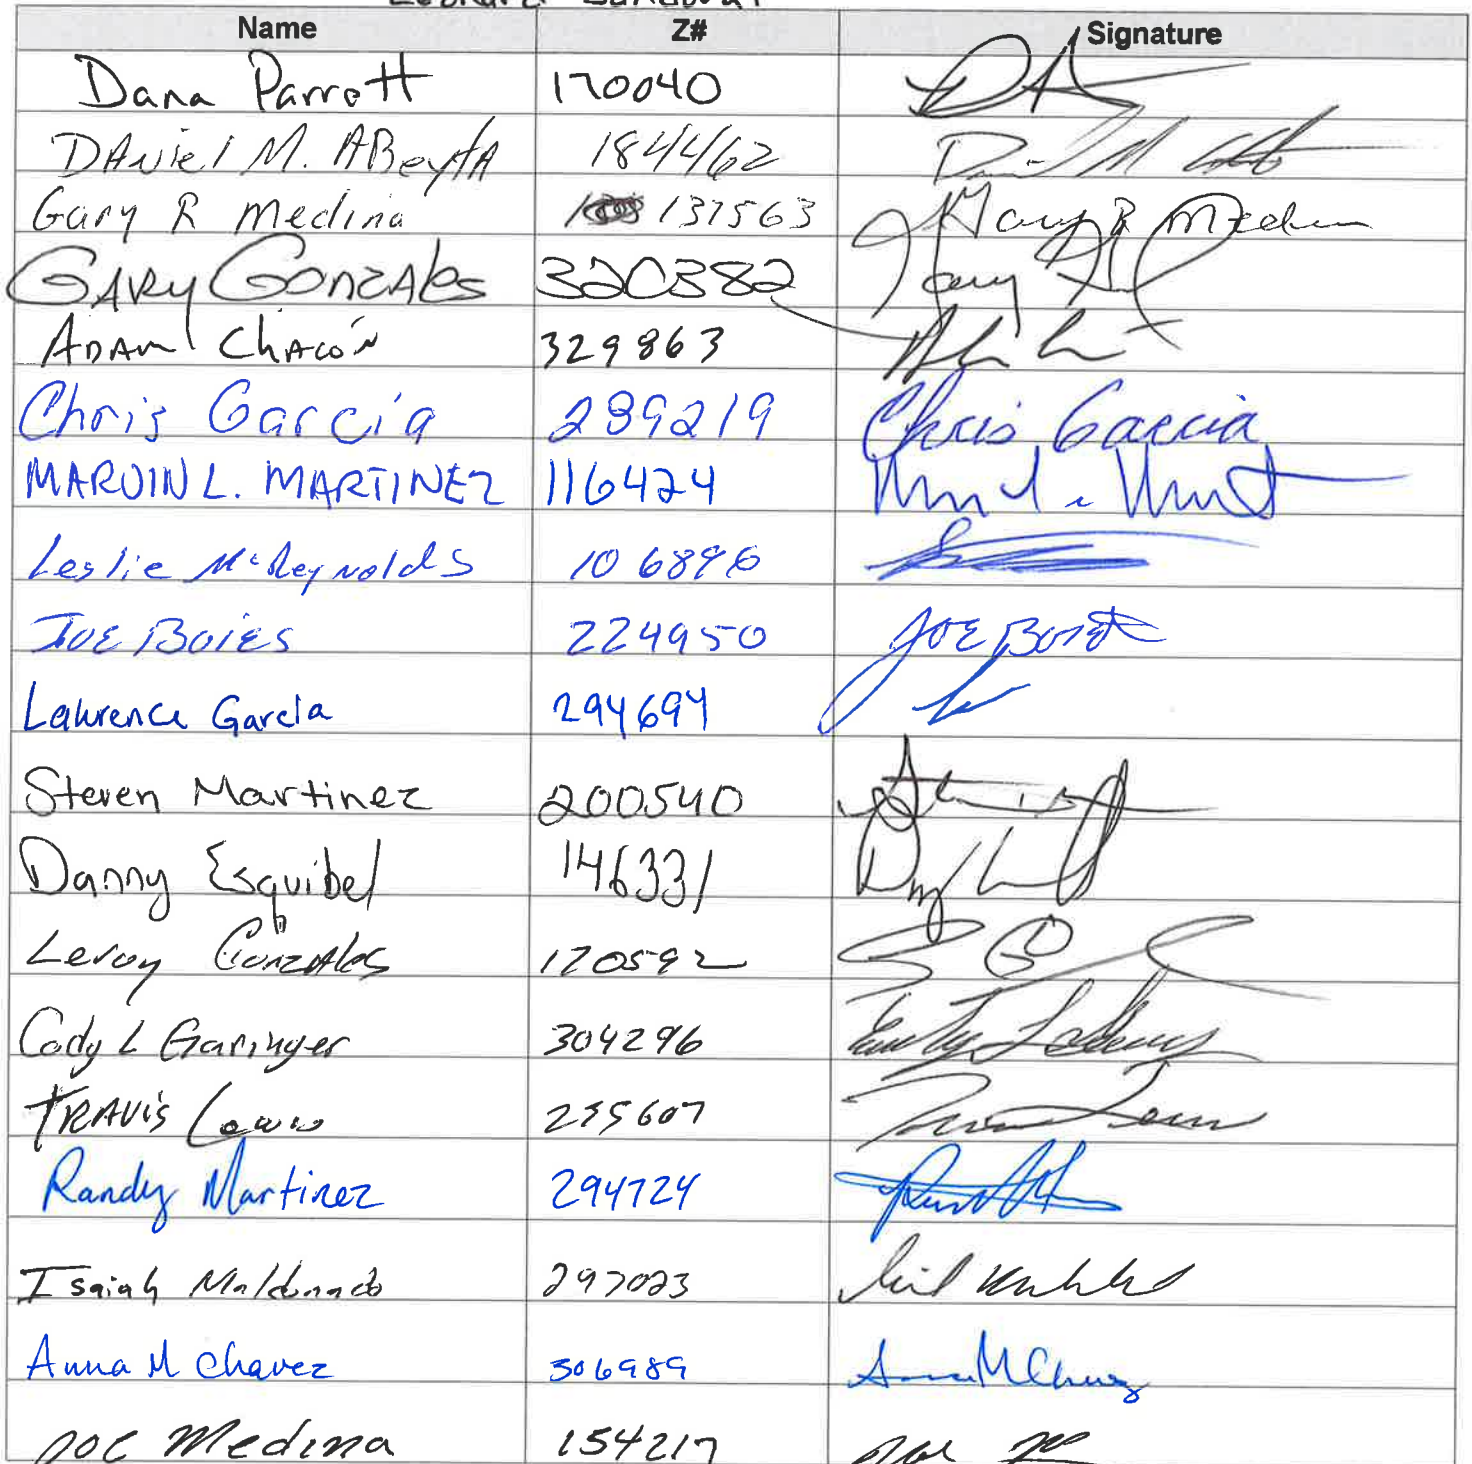 Leonard Sandoval
Name Z# Signature
Dana Parrott 170040
DANiel M. ABeytA 184462
Gary R Medina 137563 Gary R Medina
GARy GONZAles 320382
ADAM Chacón 329863
Chris Garcia 289219 Chris Garcia
MARVIN L. MARTINEZ 116424
Leslie McReynolds 106896
JOE BOIES 224950 JOE BOIES
Lawrence Garcia 294694
Steven Martinez 200540
Danny Esquibel 146331
Leroy GonzAles 170592
Cody L Garinger 304296
TRAVis 295607
Randy Martinez 294724
Isaiah Maldonado 297023
Anna M Chavez 306989 Anna M Chavez
Joe Medina 154217